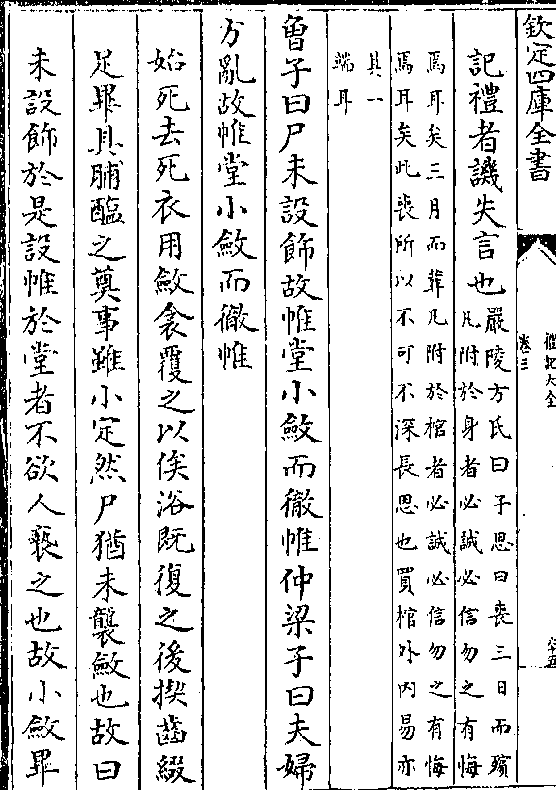 欽定四庫全書
禮記大全
卷三
記禮者譏失言也
嚴陵方氏曰子思曰喪三日而殯
凡附於身者必誠必信勿之有悔
焉耳矣三月而葬凡附於棺者必誠必信勿之有悔
焉耳矣此喪所以不可不深長思也買棺外內易亦
其一
端耳
曾子曰尸未設飾故帷堂小斂而徹帷仲梁子曰夫婦
方亂故帷堂小斂而徹帷
始死去死衣用斂衾覆之以俟浴既復之後揳齒綴
足畢具脯醢之奠事雖小定然尸猶未襲斂也故曰
未設飾於是設帷於堂者不欲人褻之也故小斂畢